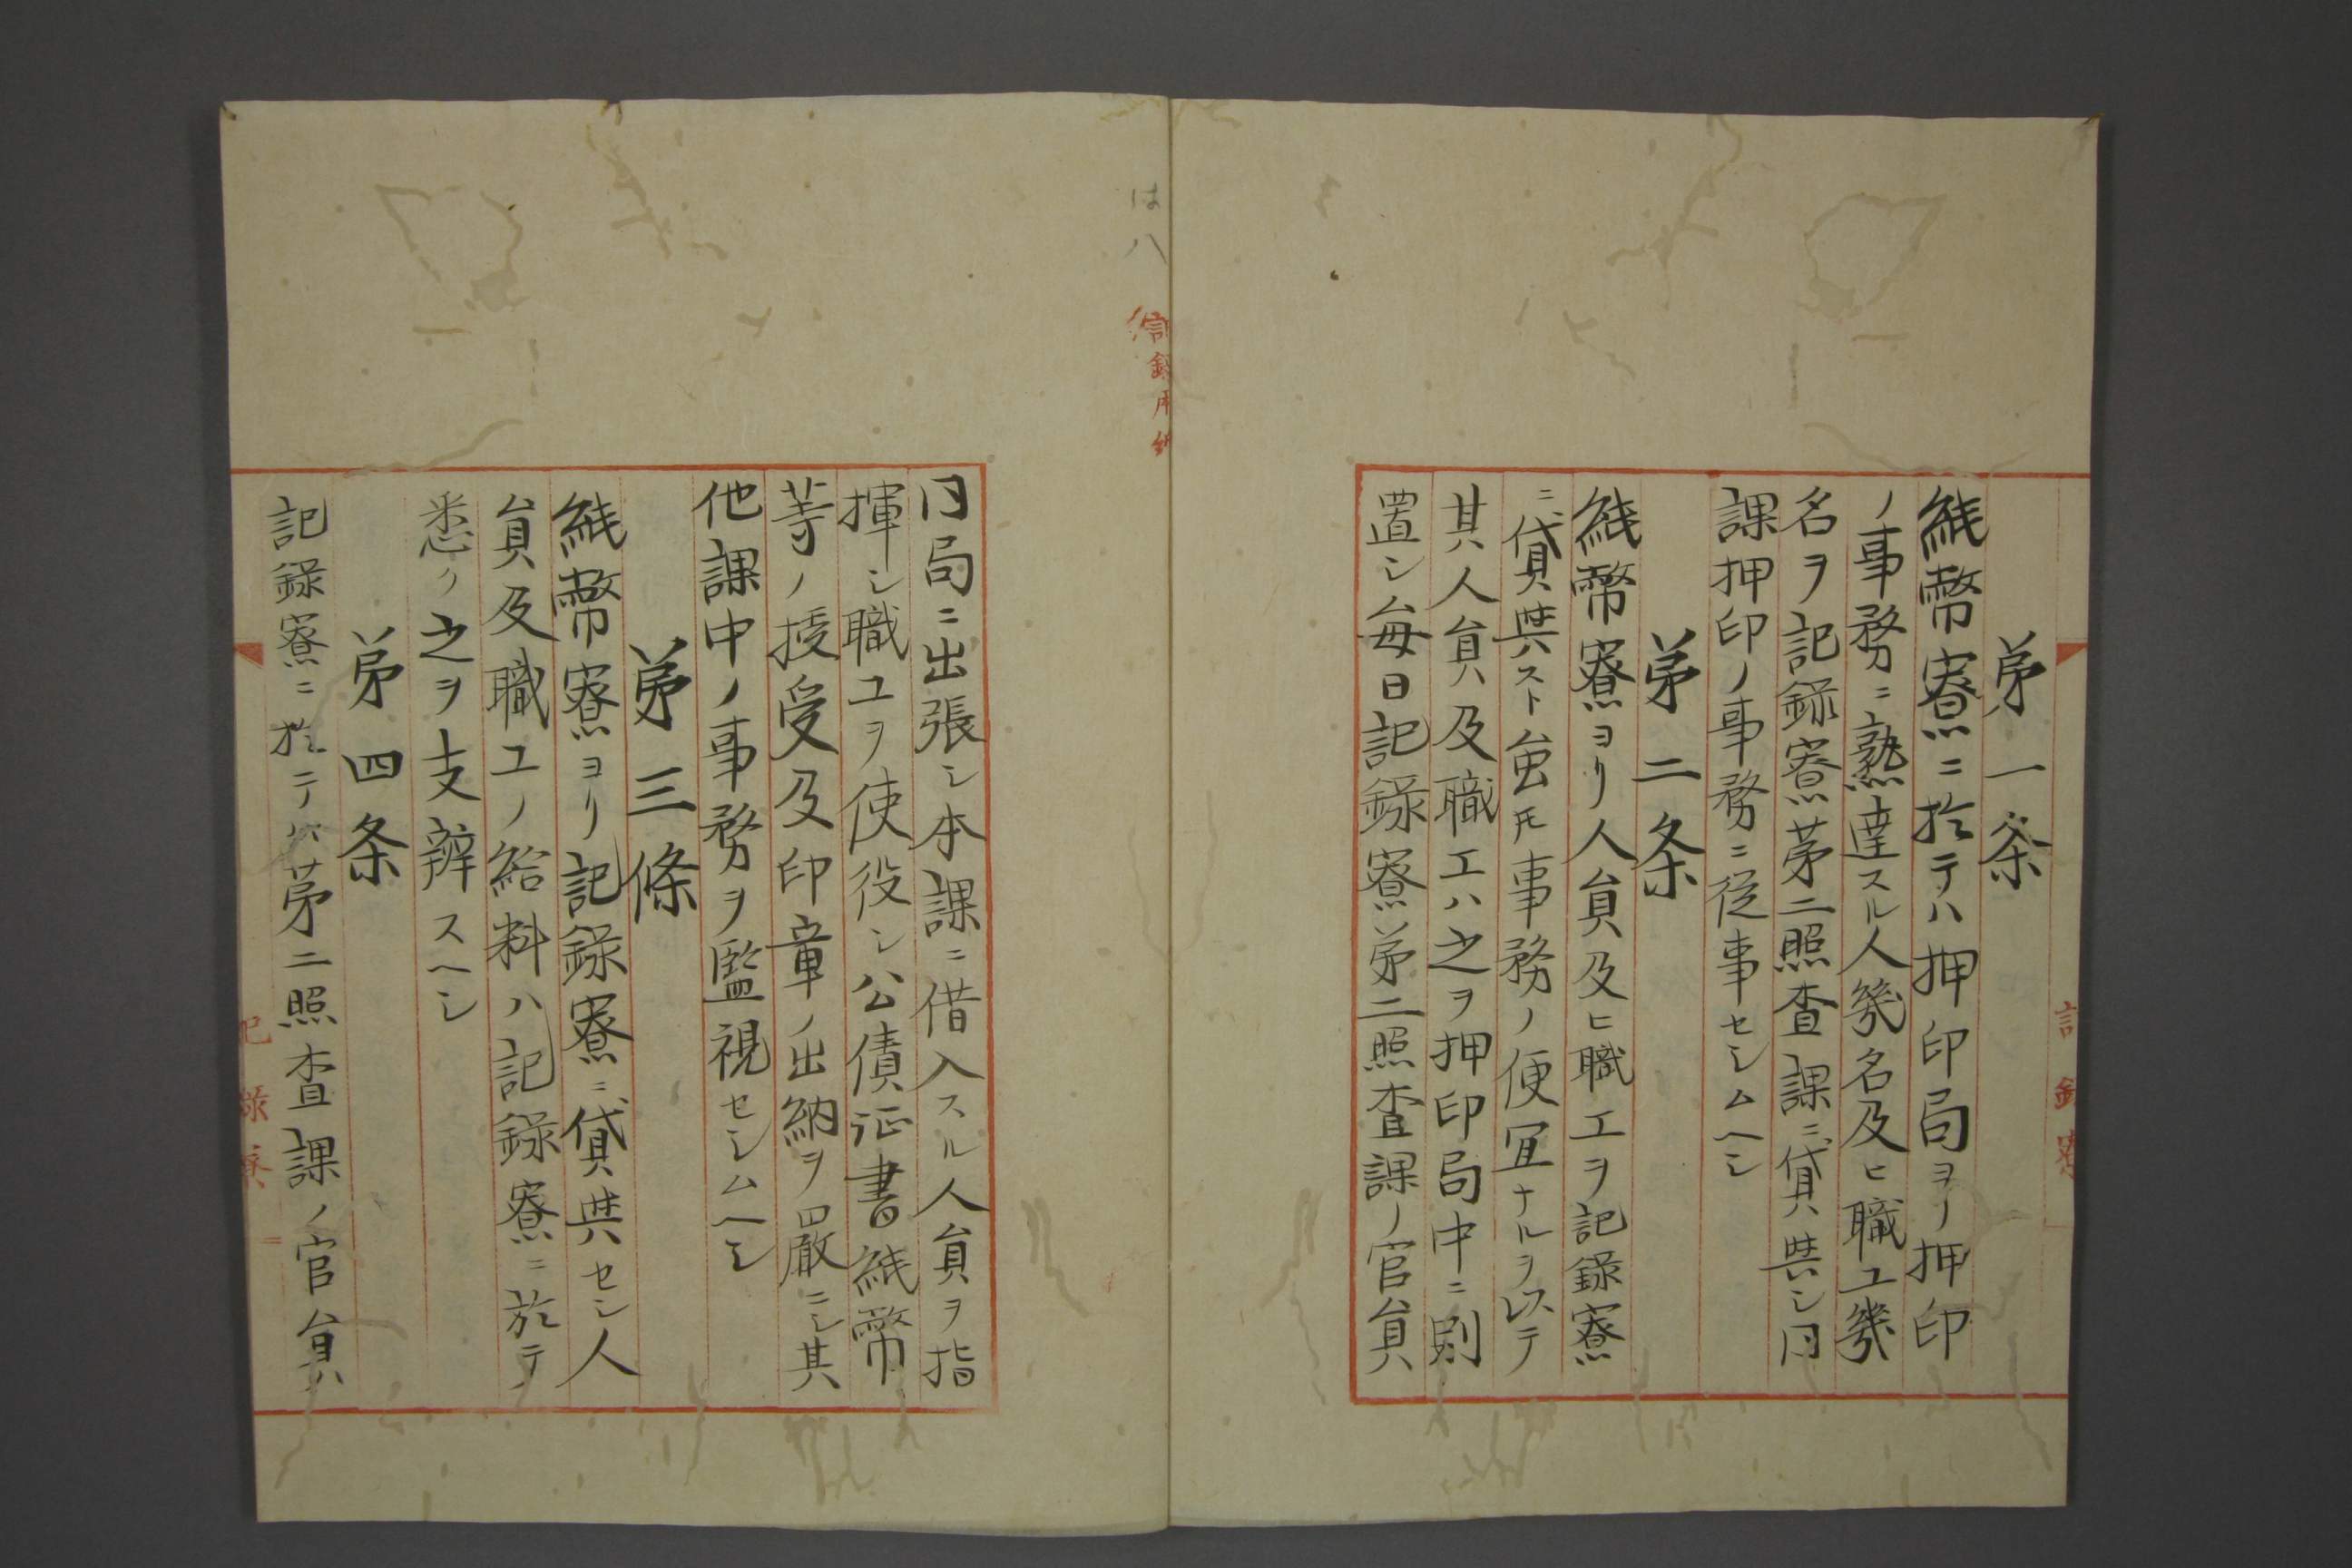 第一条
紙幣寮ニ於テハ押印局ヨリ押印
ノ事務ニ熟達スル人幾名及ヒ職工幾
名ヲ記録寮第二照査課ニ貸與シ同
課押印ノ事務ニ従事セシムヘシ
第二条
紙幣寮ヨリ人員及ヒ職工ヲ記録寮
ニ貸與スト虽𪜈事務ノ便宜ナルヲ以テ
其人員及職工ハ之ヲ押印局中ニ別
置シ毎日記録寮第二照査課ノ官員
記録寮
は八
記録用紙
同局ニ出張シ本課ニ借入スル人員ヲ指
揮シ職工ヲ使役シ公債证書紙幣
等ノ授受及印章ノ出納ヲ嚴ニシ其
他課中ノ事務ヲ監視セシムヘシ
第三條
紙幣寮ヨリ記録寮ニ貸與セシ人
員及職工ノ給料ハ記録寮ニ於テ
悉ク之ヲ支辨スヘシ
第四条
記録寮ニ於テハ第二照査課ノ官員
記録寮